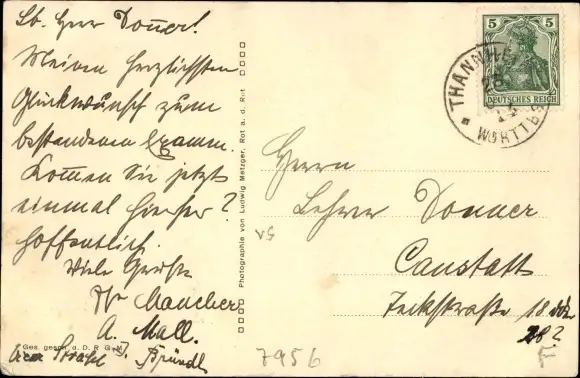 Lb. Herr Donner!
Meinen herzlichsten
Glückwunsch zum
bestandenen Examen.
Kommen Sie jetzt
einmal hierher?
Hoffentlich.
Viele Grüße
Maucher
A. Mall.
Ges. gesch. d. D. R. G. M.
Photographie von Ludwig Metzger, Rot a. d. Rot
5 5
DEUTSCHES REICH
THANNHEIM
WÜRTTBG
Herrn
Lehrer Donner
Canstatt
Teckstraße 18
28?
v5
7956